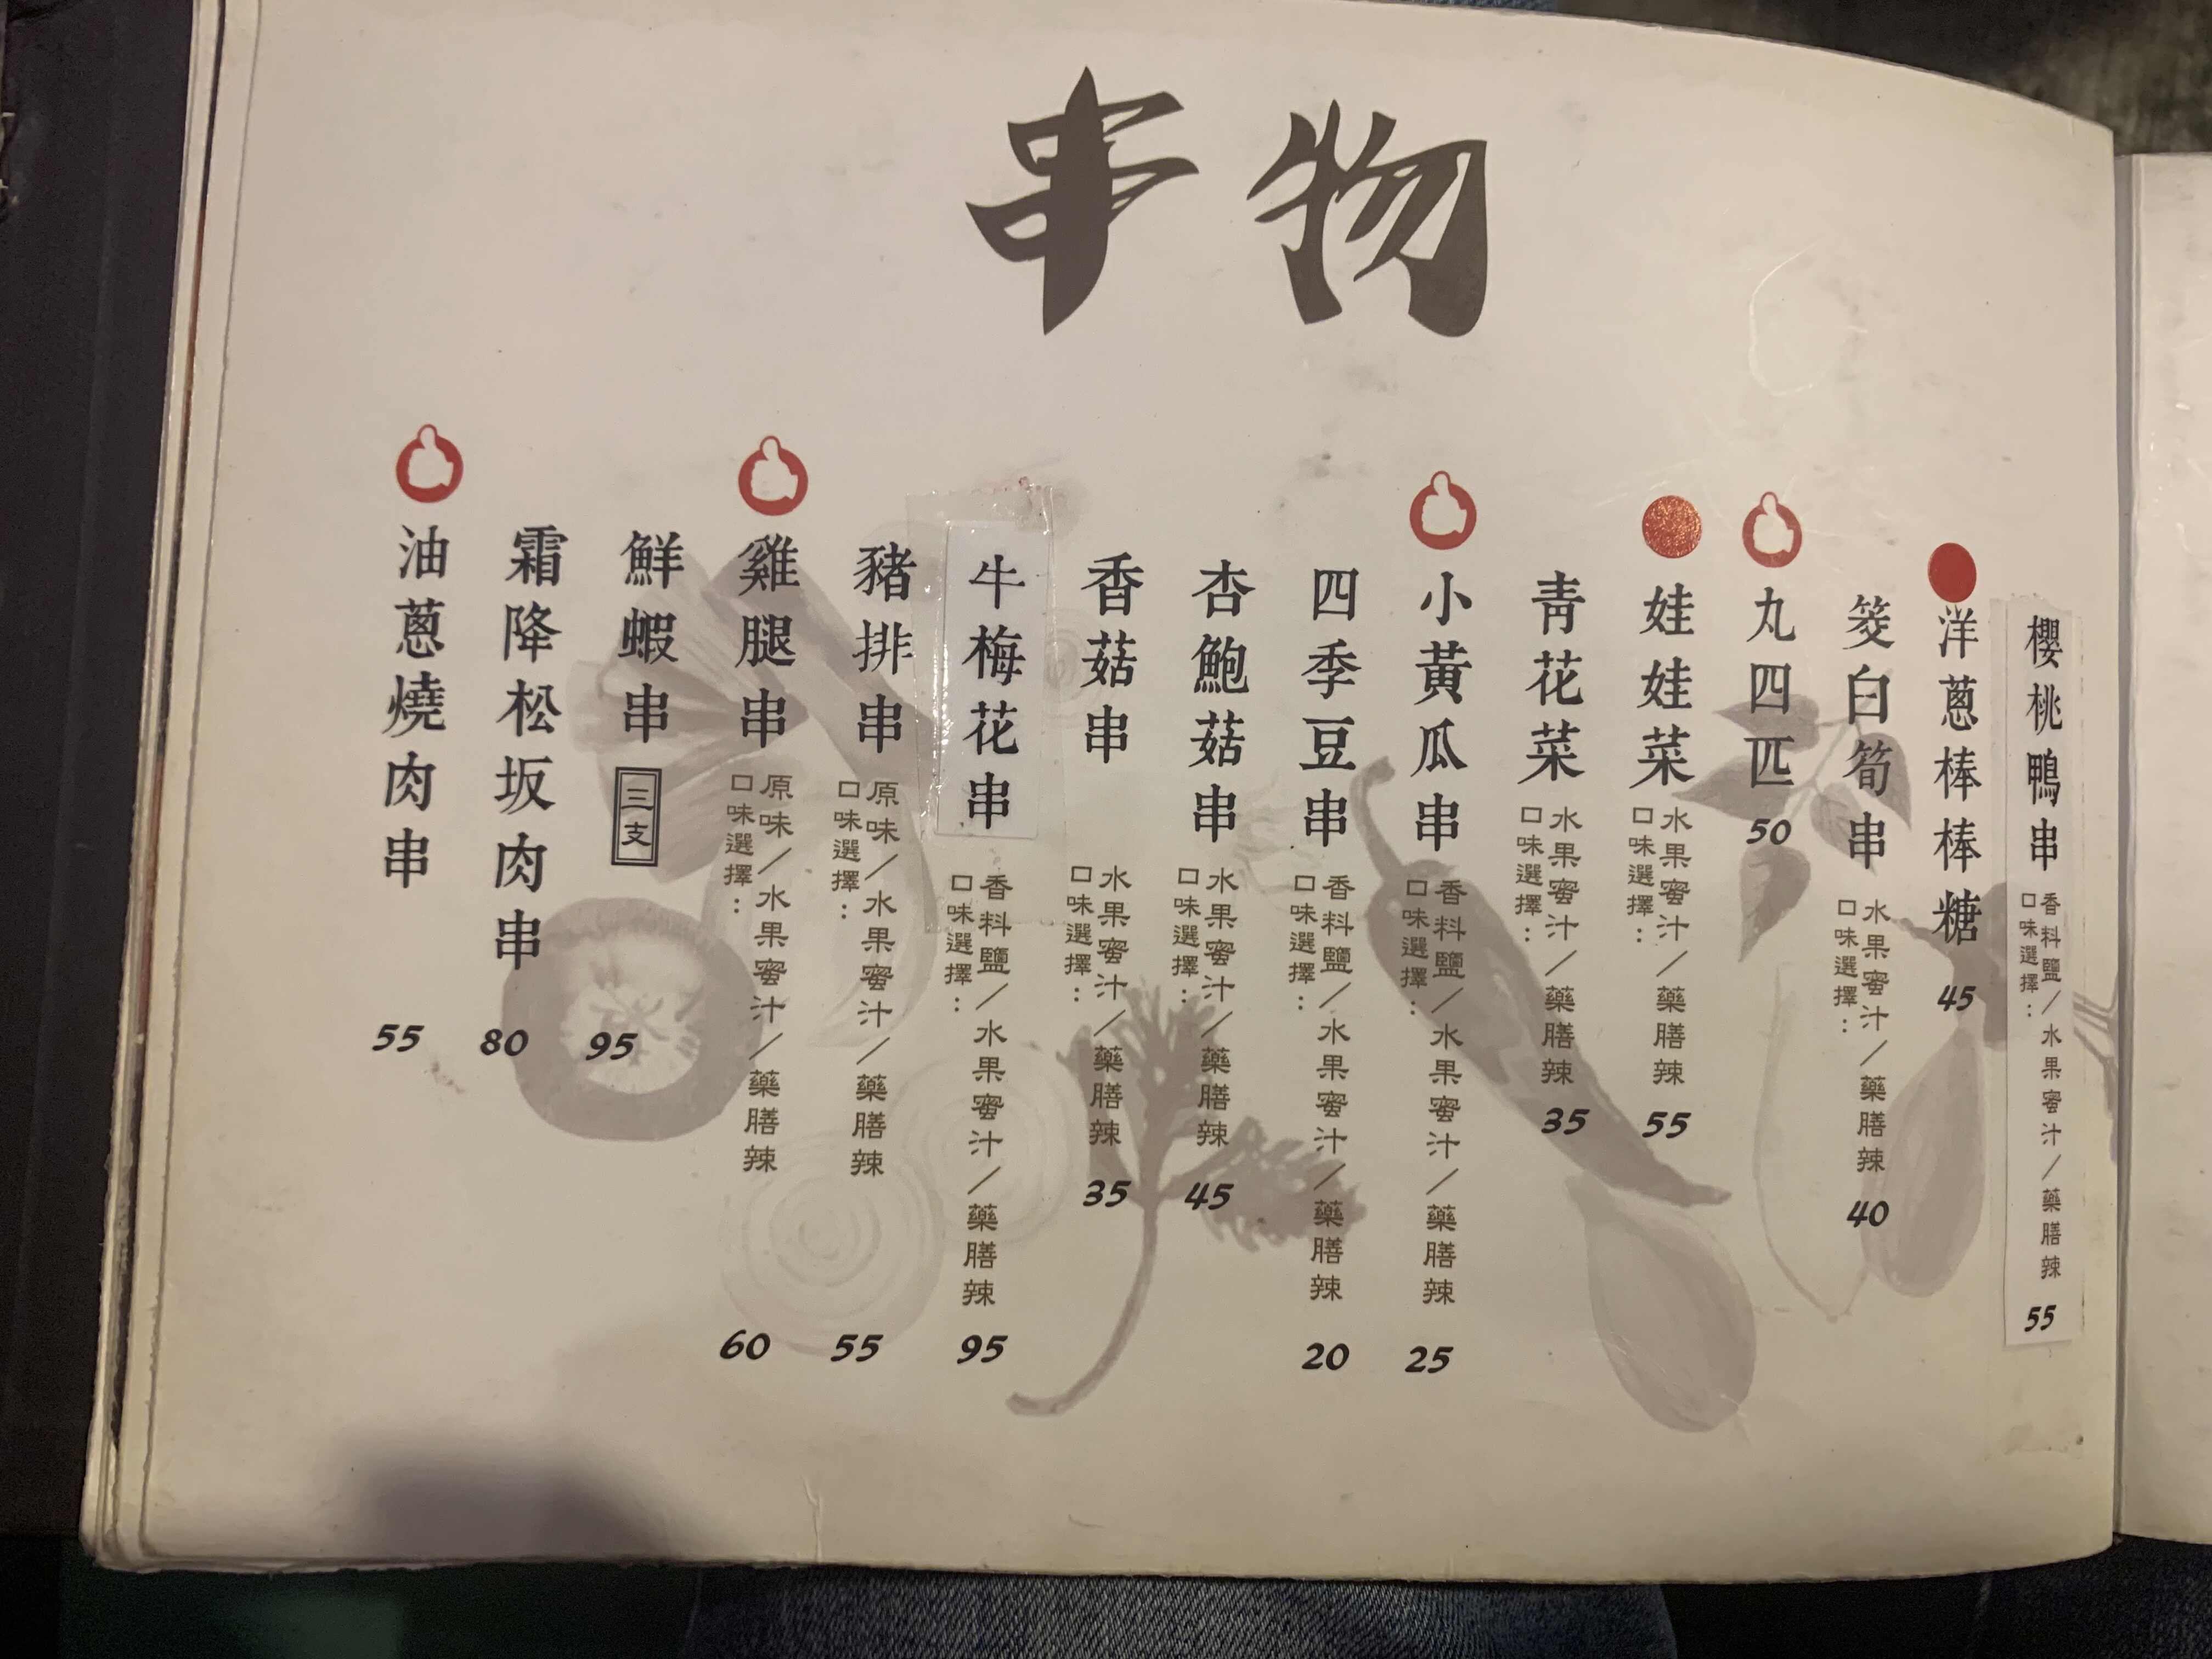 串物
油蔥燒肉串
55
霜降松坂肉串
80
鮮蝦串 三支
95
雞腿串
口味選擇：
原味／水果蜜汁／藥膳辣
60
豬排串
口味選擇：
原味／水果蜜汁／藥膳辣
55
牛梅花串
口味選擇：
香料鹽／水果蜜汁／藥膳辣
95
香菇串
口味選擇：
水果蜜汁／藥膳辣
35
杏鮑菇串
口味選擇：
水果蜜汁／藥膳辣
45
四季豆串
口味選擇：
香料鹽／水果蜜汁／藥膳辣
20
小黃瓜串
口味選擇：
香料鹽／水果蜜汁／藥膳辣
25
青花菜
口味選擇：
水果蜜汁／藥膳辣
35
娃娃菜
口味選擇：
水果蜜汁／藥膳辣
55
丸四匹
50
筊白筍串
口味選擇：
水果蜜汁／藥膳辣
40
洋蔥棒棒糖
45
櫻桃鴨串
口味選擇：
香料鹽／水果蜜汁／藥膳辣
55